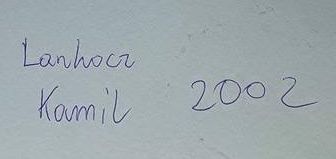 Lanhocz
Kamil
2002